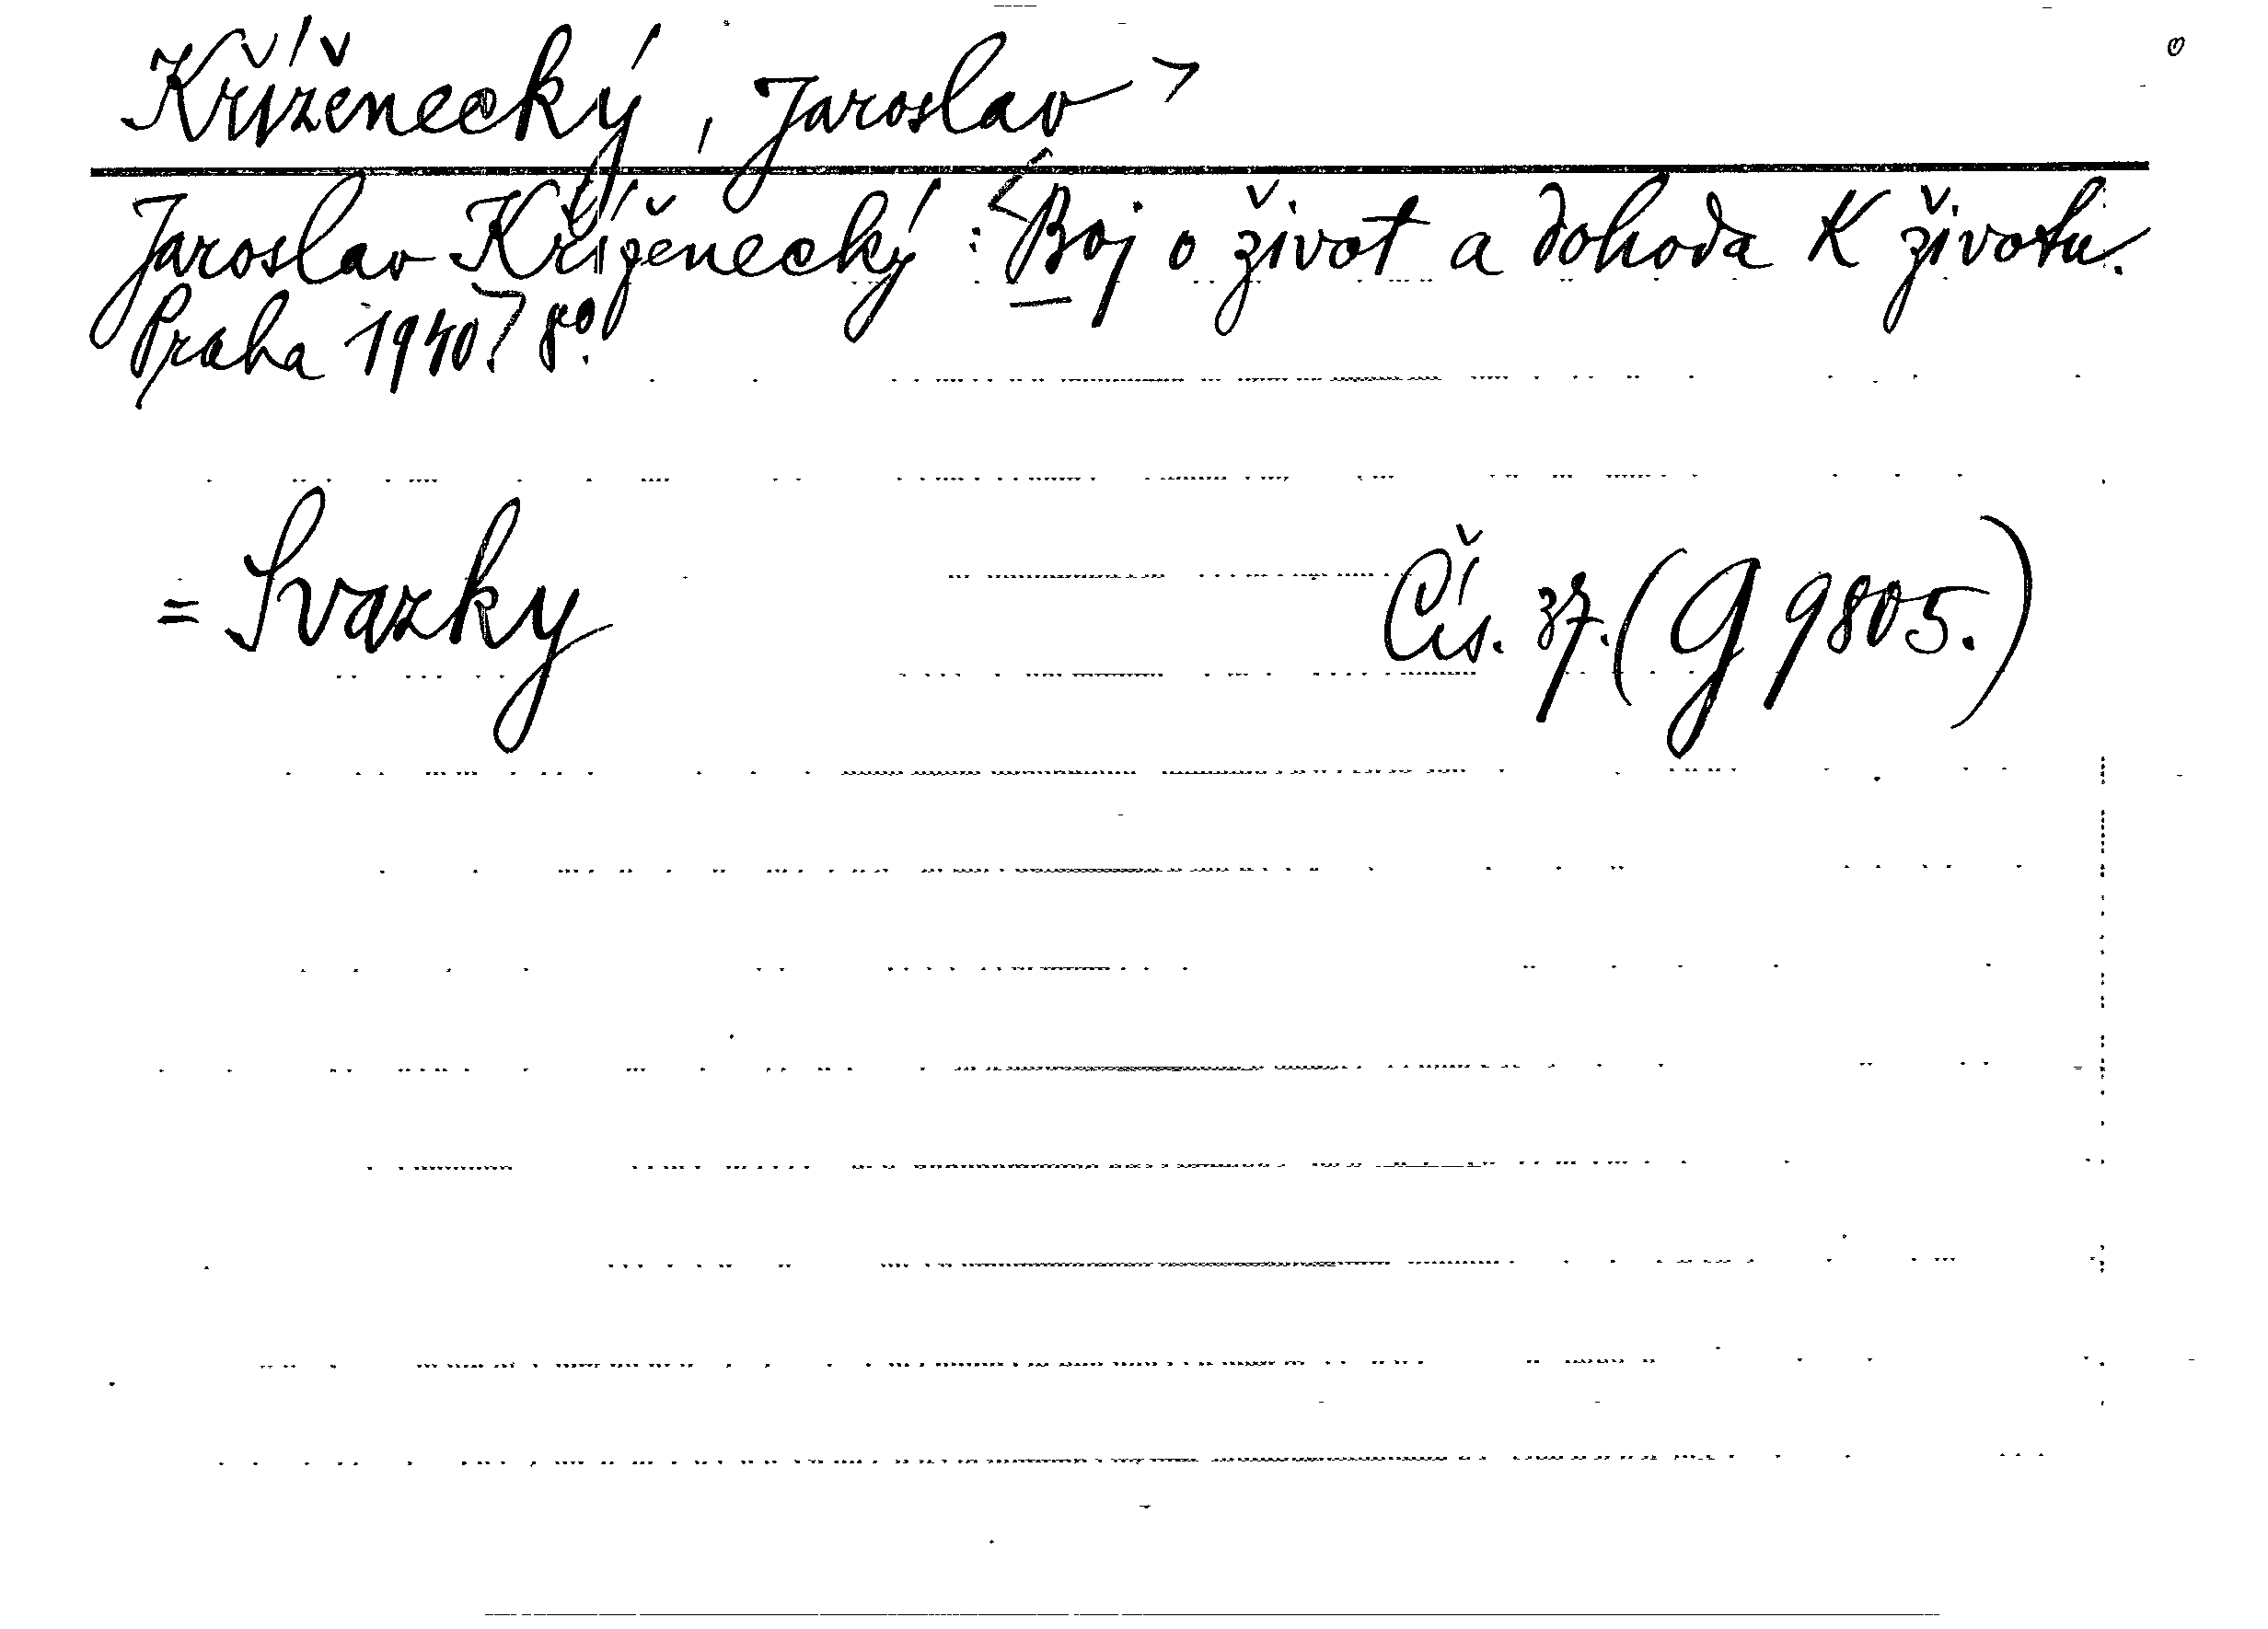 Kříženecký, Jaroslav
Jaroslav Kříženecký: Boj o život a dohoda k životu.
Praha 1940. 8°.
= Svazky Čís. 37. (G 9805.)